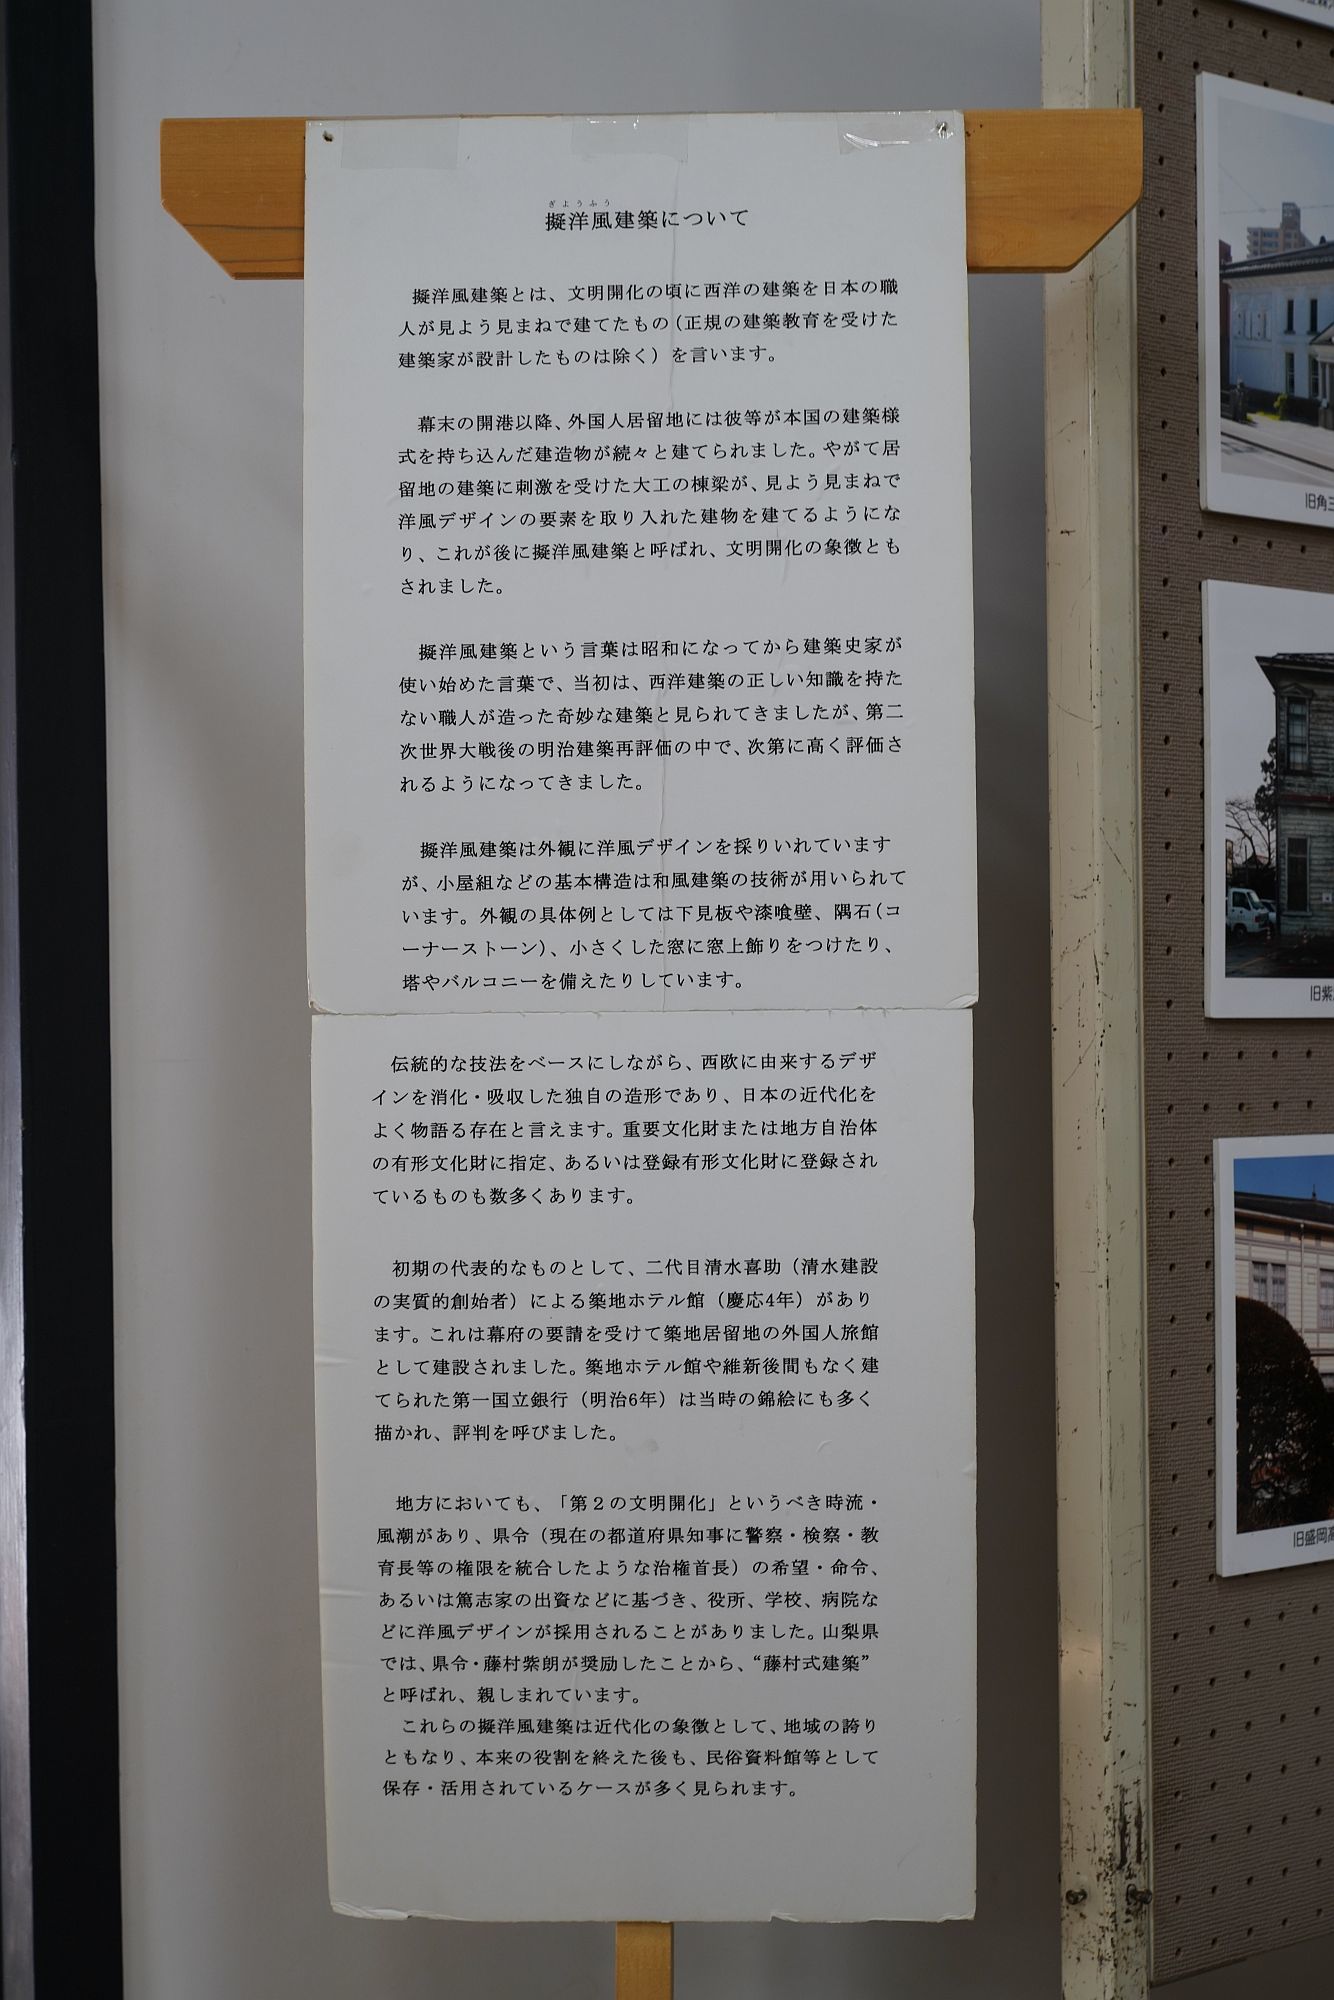 ぎようふう
擬洋風建築について
擬洋風建築とは、文明開化の頃に西洋の建築を日本の職
人が見よう見まねで建てたもの(正規の建築教育を受けた
建築家が設計したものは除く)を言います。
幕末の開港以降、外国人居留地には彼等が本国の建築様
式を持ち込んだ建造物が続々と建てられました。やがて居
留地の建築に刺激を受けた大工の棟梁が、見よう見まねで
洋風デザインの要素を取り入れた建物を建てるようにな
り、これが後に擬洋風建築と呼ばれ、文明開化の象徴とも
されました。
擬洋風建築という言葉は昭和になってから建築史家が
使い始めた言葉で、当初は、西洋建築の正しい知識を持た
ない職人が造った奇妙な建築と見られてきましたが、第二
次世界大戦後の明治建築再評価の中で、次第に高く評価さ
れるようになってきました。
擬洋風建築は外観に洋風デザインを採りいれています
が、小屋組などの基本構造は和風建築の技術が用いられて
います。外観の具体例としては下見板や漆喰壁、隅石(コ
ーナーストーン)、小さくした窓に窓上飾りをつけたり、
塔やバルコニーを備えたりしています。
伝統的な技法をベースにしながら、西欧に由来するデザ
インを消化・吸収した独自の造形であり、日本の近代化を
よく物語る存在と言えます。重要文化財または地方自治体
の有形文化財に指定、あるいは登録有形文化財に登録され
ているものも数多くあります。
初期の代表的なものとして、二代目清水喜助(清水建設
の実質的創始者)による築地ホテル館(慶応4年)があり
ます。これは幕府の要請を受けて築地居留地の外国人旅館
として建設されました。築地ホテル館や維新後間もなく建
てられた第一国立銀行(明治6年)は当時の錦絵にも多く
描かれ、評判を呼びました。
地方においても、「第2の文明開化」というべき時流・
風潮があり、県令(現在の都道府県知事に警察・検察・教
育長等の権限を統合したような治権首長)の希望・命令、
あるいは篤志家の出資などに基づき、役所、学校、病院な
どに洋風デザインが採用されることがありました。山梨県
では、県令・藤村紫朗が奨励したことから、“藤村式建築”
と呼ばれ、親しまれています。
これらの擬洋風建築は近代化の象徴として、地域の誇り
ともなり、本来の役割を終えた後も、民俗資料館等として
保存・活用されているケースが多く見られます。
旧角三
旧紫
旧盛岡高